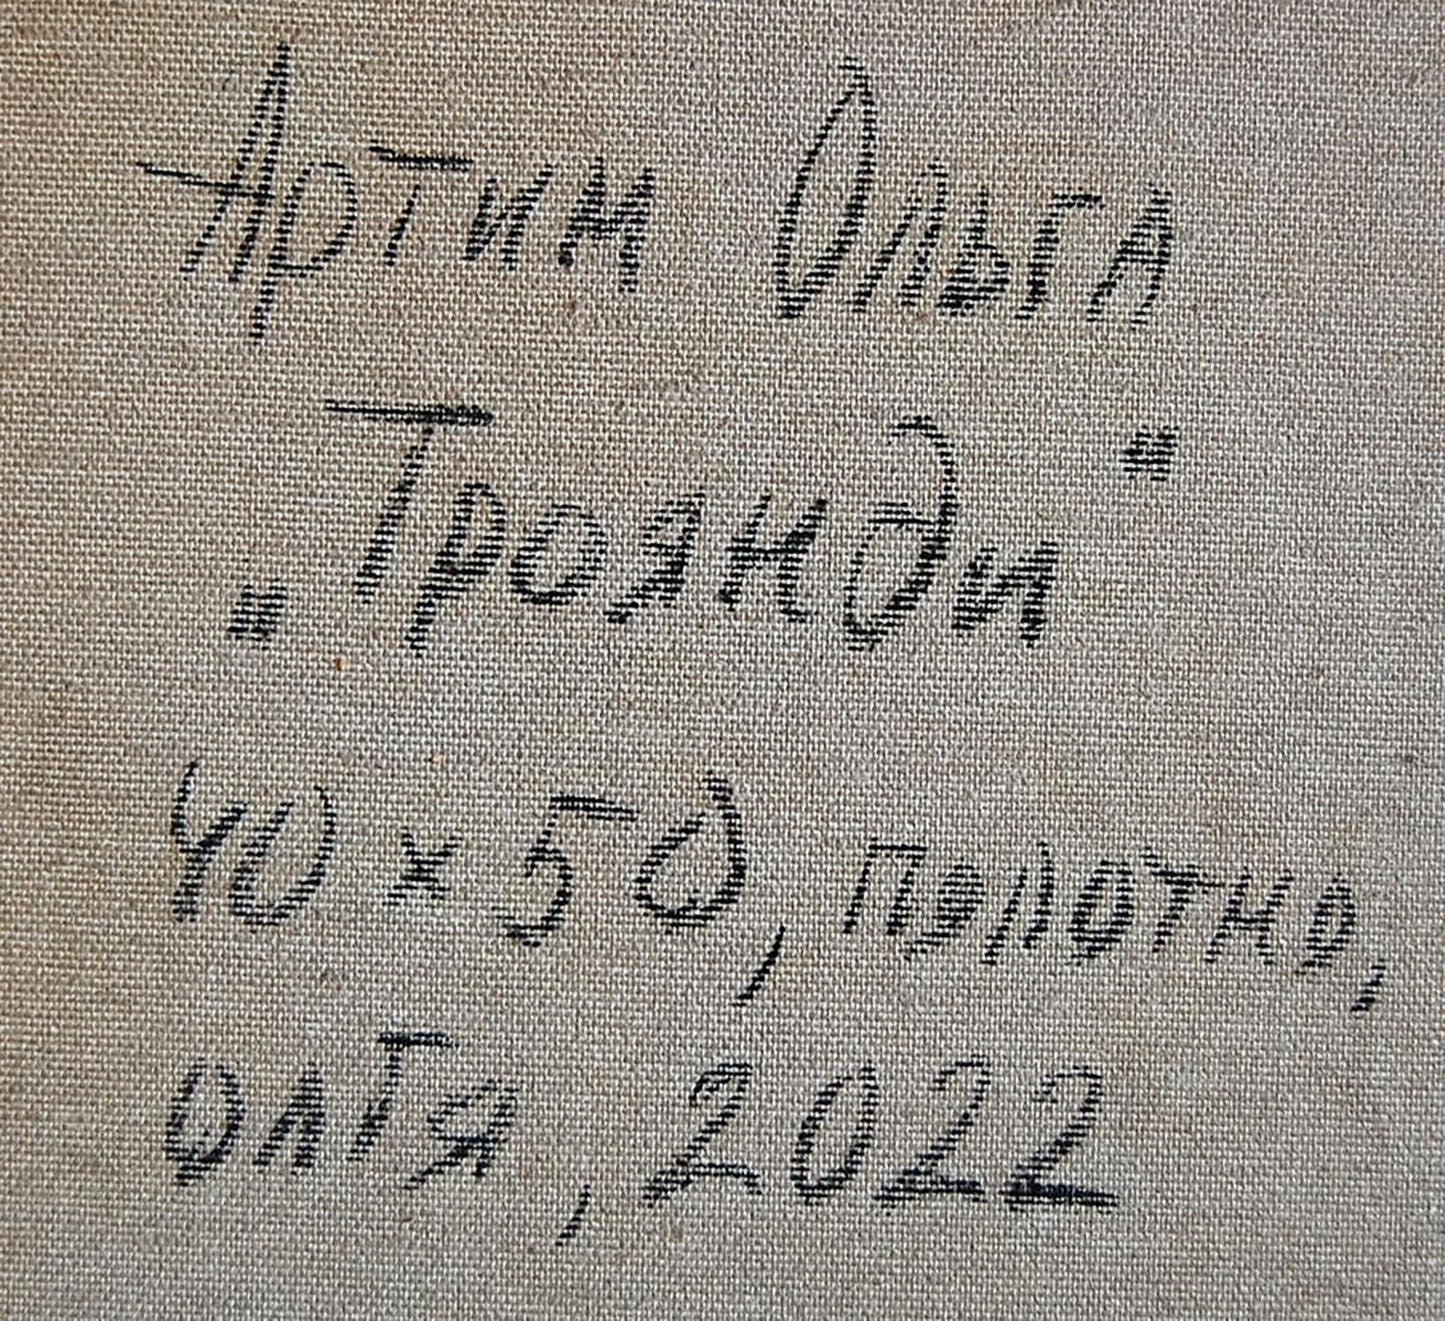 Артим Ольга
„Троянди"
40 × 50, полотно,
олія, 2022